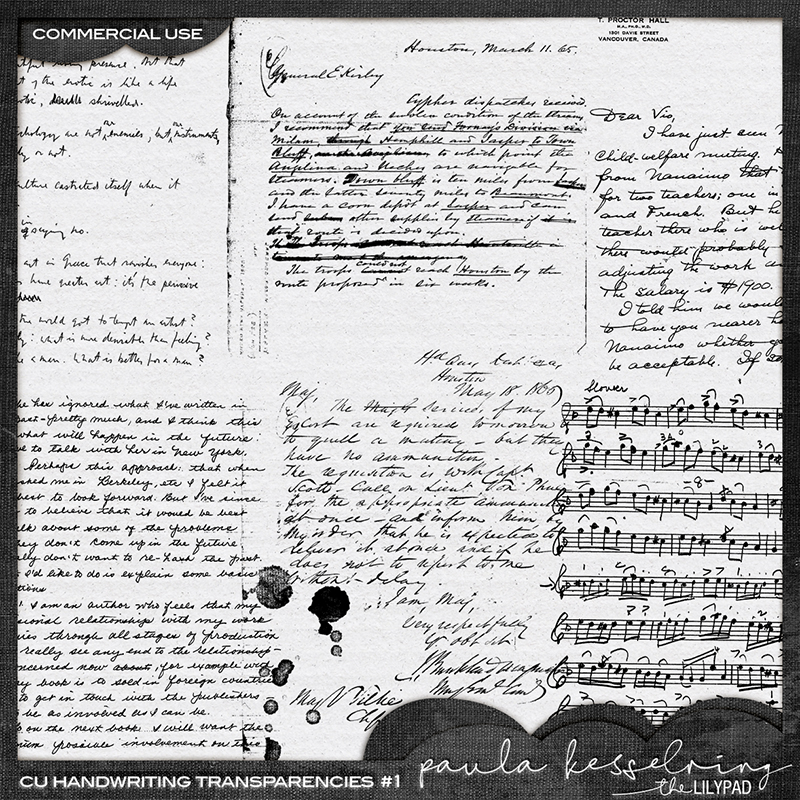 COMMERCIAL USE
of the erotic is like a life
shrivelled.
are not enemies, but instruments
or not.
culture castrated itself when it
saying no.
art is Grace that ravishes everyone:
have greater art: it's the pervasive
the world got to tempt an artist?
what is more desirable than feeling?
be a man. What is better for a man?
he has ignored what I've written in
past - pretty much, and I think this
what will happen in the future.
to talk with her in New York.
Perhaps this approach: that when
asked me in Berkeley, etc I felt it
best to look forward. But I've since
to believe that it would be best
talk about some of the problems
they don't come up in the future
really don't want to re-hash the past.
I'd like to do is explain some basic
I am an author who feels that my
relationships with my work
through all stages of production
really see any end to the relationship
concerned now about, for example with
my book is to sold in foreign countries
to get in touch with the publishers
be as involved as I can be.
on the next book I will want the
possible involvement on this
Houston, March 11. 65.
General E Kirby
Cypher dispatches received.
On account of the sudden condition of the streams,
I recommend that you send Forney's Division via
Milam, Hemphill and Jasper to Town
Bluff, to which point the
Angelina and Neches are navigable for
steamers. Town bluff is ten miles from
and the latter seventy miles to Beaumont.
I have a corn depot at Jasper and can
send other supplies by steamers if
route is decided upon.
The troops could not reach Houston by the
route proposed in six weeks.
Houston
May 18. 1865
Maj,
The services of my
Escort are required tomorrow
to quell a mutiny - but they
have no ammunition.
The requisition is with Capt
Scott. Call on Lieut Gen
for the appropriate ammunition
at once - and inform him by
my order, that he is expected to
deliver it at once and if he
does not to report to me
delay.
I am, Maj,
Very respectfully
Yr obt svt
T. PROCTOR HALL
M.A., PH.D., M.D.
1301 DAVIE STREET
VANCOUVER, CANADA
Dear Vio,
I have just seen
child-welfare meeting.
from Nanaimo that
for two teachers; one in
and French. But he
teacher there who is
there would probably
adjusting the work
The salary is $1900.
I told him we would
to have you nearer
Nanaimo whether
be acceptable. If
Slover
CU HANDWRITING TRANSPARENCIES #1
paula kesselring
the LILYPAD